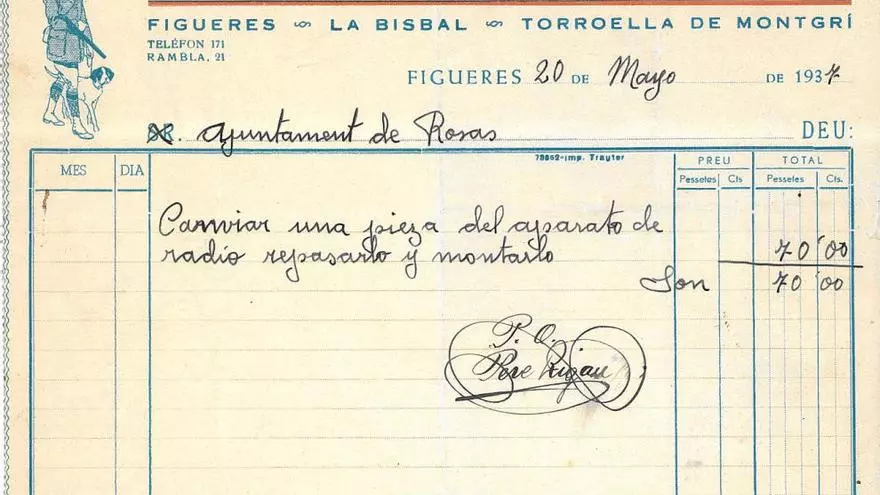 FIGUERES ∾ LA BISBAL ∾ TORROELLA DE MONTGRÍ
TELÉFON 171
RAMBLA, 21
FIGUERES 20 DE Mayo DE 1937
SR. Ajuntament de Rosas DEU:
73662-imp. Trayter
MES DIA PREU TOTAL
Pessetes Cts Pessetes Cts.
Canviar una pieza del aparato de
radio repasarlo y montarlo 70'00
Son 70'00
P. O.
Pere Rigau